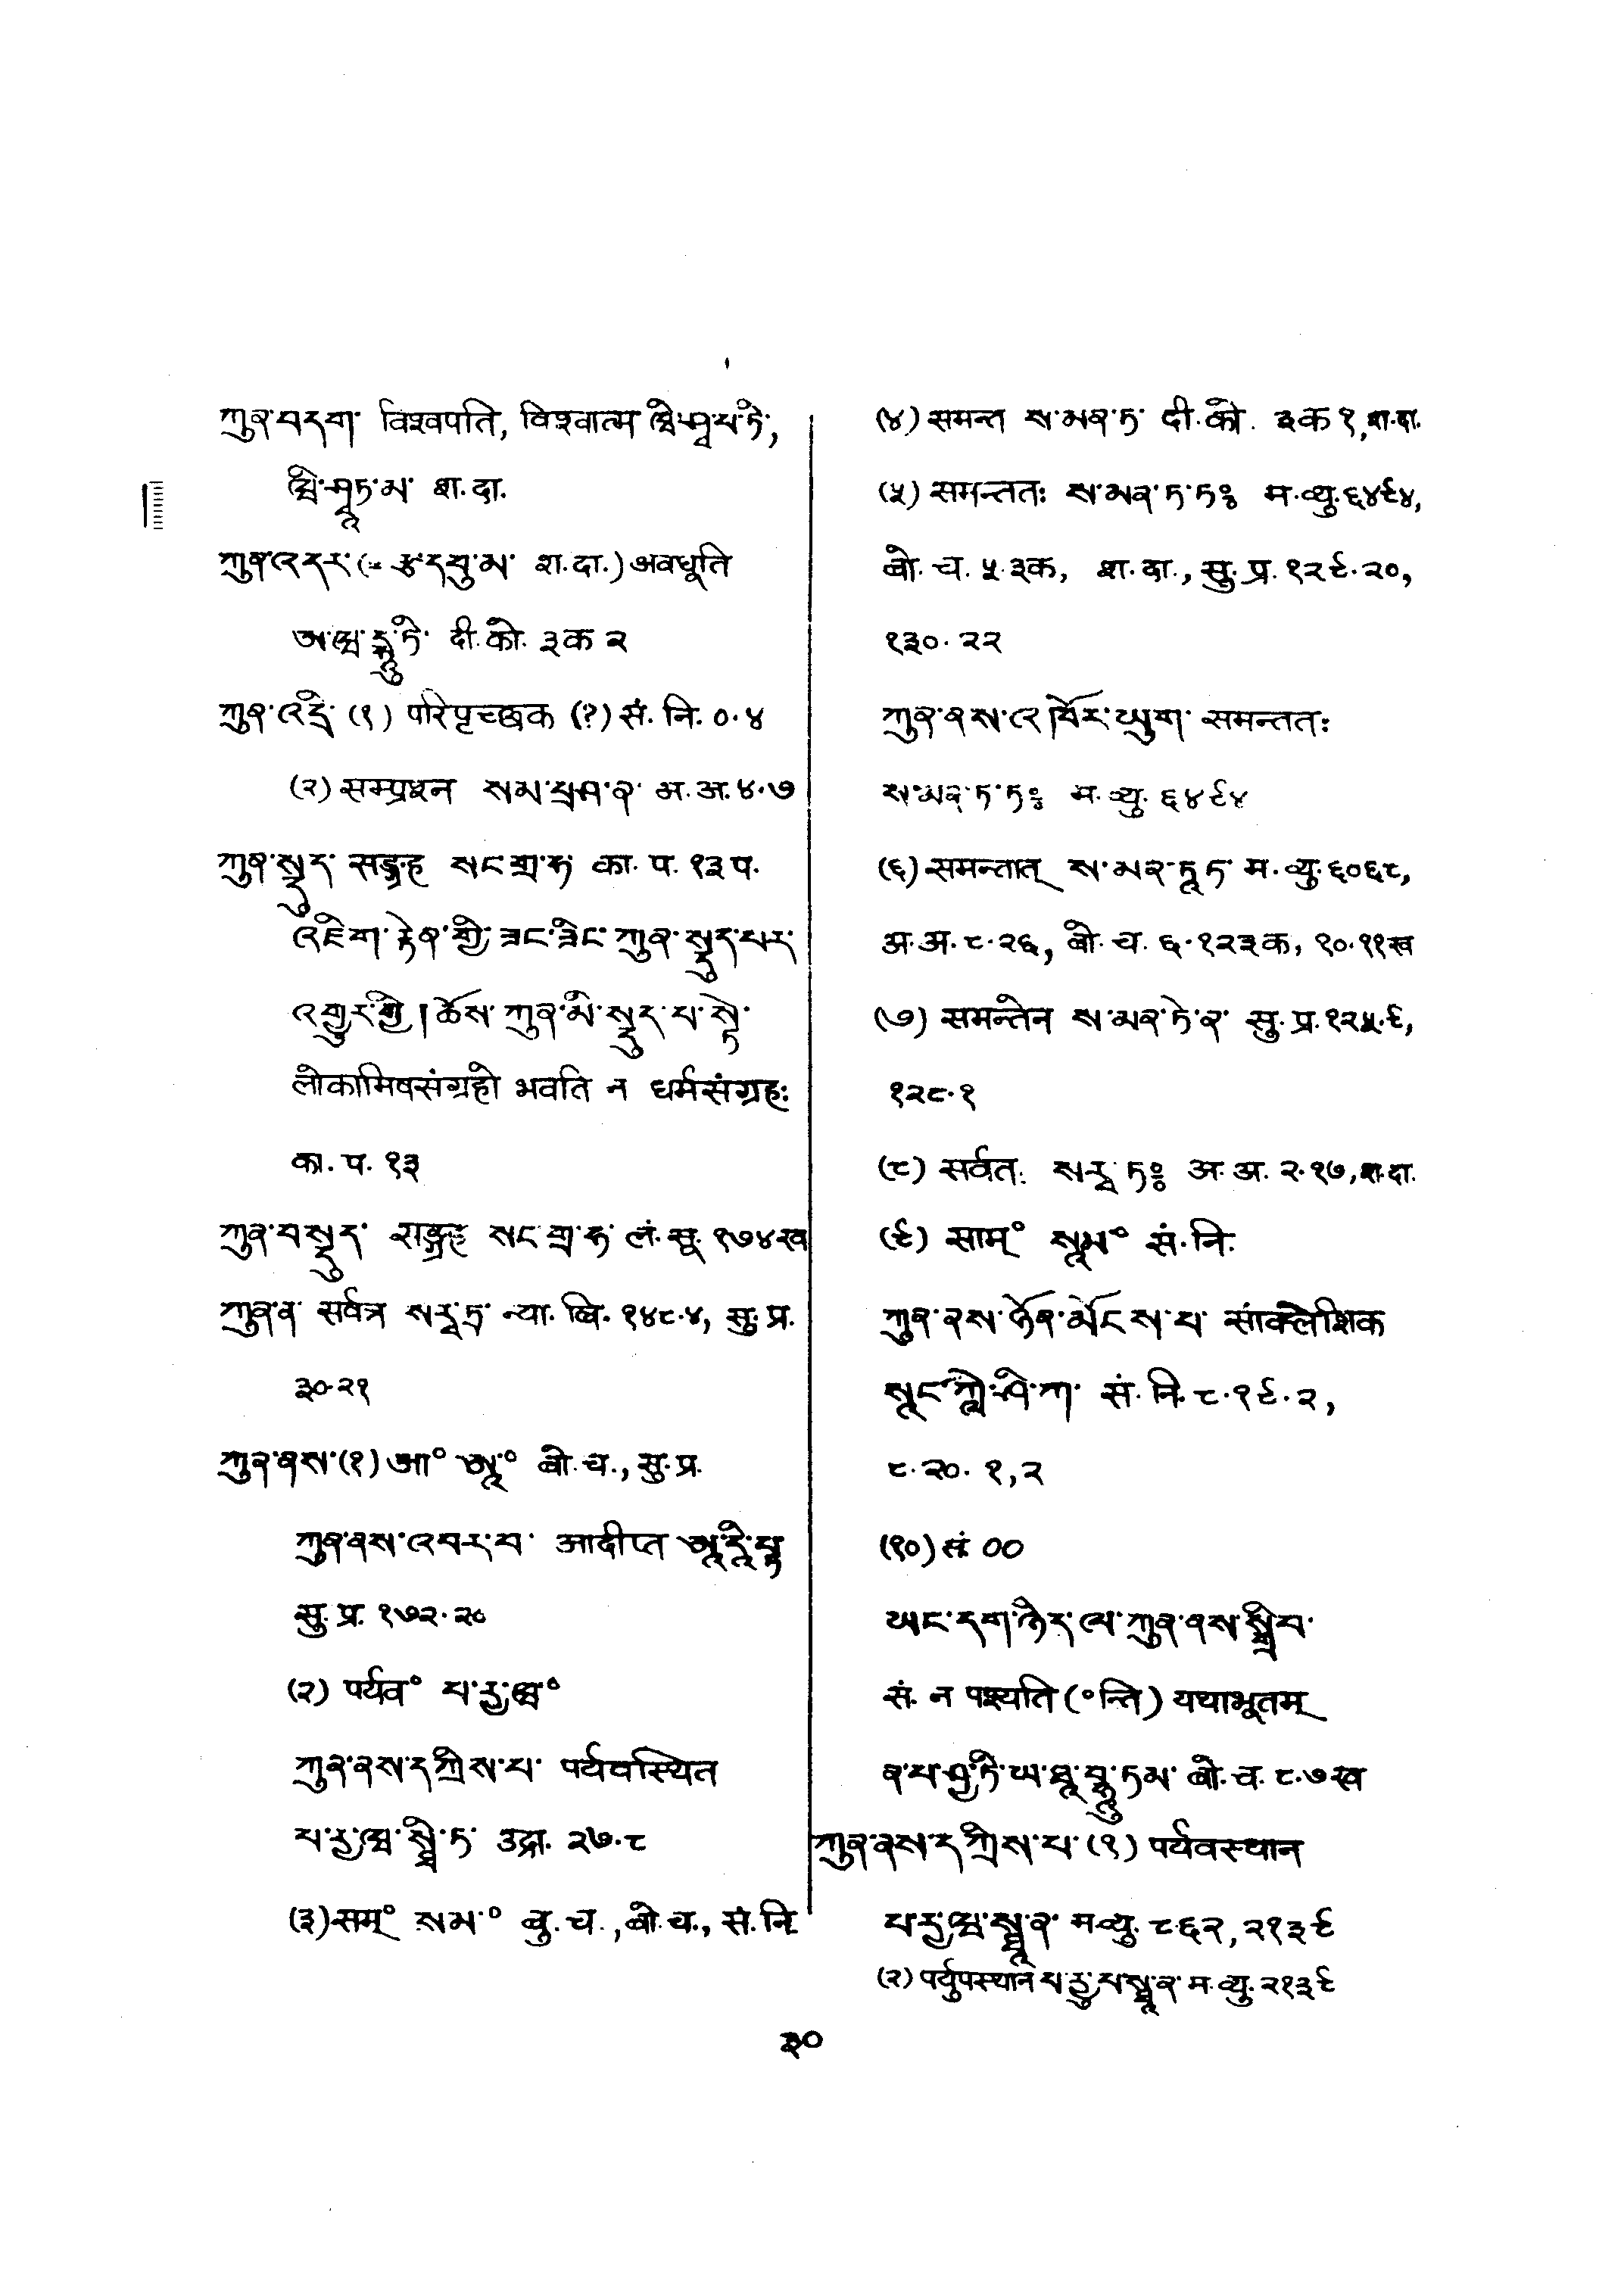 ཀུན་བདག་ विश्वपति, विश्वात्म བི་ཤྭ་པ་ཏི,
བི་ཤྭཱཏ་མ་ श. दा.
ཀུན་འདར་ (= རྩ་དབུ་མ་ श. दा.) अवधूति
ཨ་བ་དྷཱུ་ཏི་ दी. को. ३क २
ཀུན་འདྲི་ (१) परिपृच्छक (?) सं. नि. ०.४
(२) सम्प्रश्न སམ་པྲཤ་ན་ अ. अ. ४.७
ཀུན་སྡུད་ सङ्ग्रह སང་གྲ་ཧ का. प. १३ प.
འཇིག་རྟེན་གྱི་ཟང་ཟིང་ཀུན་སྡུད་པར་
འགྱུར་གྱི།ཆོས་ཀུན་མི་སྡུད་པ་སྟེ་
लोकामिषसंग्रहो भवति न धर्मसंग्रहः
का. प. १३
ཀུན་བསྡུད་ सङ्ग्रह སང་གྲ་ཧ लं. सू. १७४ख
ཀུན་ན་ सर्वत्र སརྦ་ཏྲ་ न्या. बि. १४८.४, सु. प्र.
३०.२१
ཀུན་ནས་(१) आ° ཨཱ° बो. च., सु. प्र.
ཀུན་ནས་འབར་བ་ आदीप्त ཨཱ་དཱི་པྟ
सु. प्र. १७२.२०
(२) पर्यव° པ་རྱ་བ°
ཀུན་ནས་དཀྲིས་པ་ पर्यवस्थित
པ་རྱ་བ་སྠི་ཏ་ उद्गा. २७.८
(३) सम्° སམ་° बु. च., बो. च., सं. नि.
(४) समन्त ས་མན་ཏ་ दी. को. ३क १, श. दा.
(५) समन्ततः ས་མན་ཏ་ཏཿ म. व्यु. ६४९४,
बो. च. ५.३क, श. दा., सु. प्र. १२९.२०,
१३०.२२
ཀུན་ནས་འཁོར་ཡུག་ समन्ततः
ས་མན་ཏ་ཏཿ म. व्यु. ६४९४
(६) समन्तात् ས་མན་ཏཱཏ་ म. व्यु. ६०६८,
अ. अ. ८.२६, बो. च. ६.१२३क, १०.११ख
(७) समन्तेन ས་མན་ཏེ་ན་ सु. प्र. १२५.९,
१२८.१
(८) सर्वतः སརྦ་ཏཿ अ. अ. २.१७, श. दा.
(९) साम्° སཱམ° सं. नि.
ཀུན་ནས་ཉོན་མོངས་པ་ सांक्लेशिक
སཱང་ཀླེ་ཤི་ཀ་ सं. नि. ८.१९.२,
८.२०.१,२
(१०) सं ००
ཡང་དག་ཉིད་ལ་ཀུན་ནས་སྒྲིབ་
सं. न पश्यति (°न्ति) यथाभूतम्
ན་པ་ཤྱ་ཏི་ཡ་ཐཱ་བྷཱུ་ཏམ་ बो. च. ८.७ख
ཀུན་ནས་དཀྲིས་པ་ (१) पर्यवस्थान
པ་རྱ་བ་སྠཱ་ན་ म. व्यु. ८६२, २१३९
(२) पर्युपस्थान པ་རྱུ་པ་སྠཱ་ན་ म. व्यु. २१३९
३०